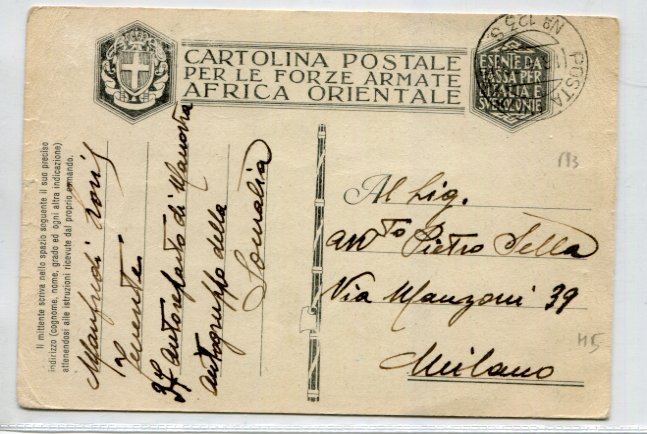 CARTOLINA POSTALE
PER LE FORZE ARMATE
AFRICA ORIENTALE
ESENTE DA
TASSA PER
L'ITALIA E
SUE COLONIE
POSTA
No 125 S
Il mittente scriva nello spazio seguente il suo preciso
indirizzo (cognome, nome, grado ed ogni altra indicazione)
attenendosi alle istruzioni ricevute dal proprio comando.
Manfredi
Tenente
37 autoreparto di Manovra
autogruppo della
Somalia
Al Sig.
Pietro Sella
Via Manzoni 39
Milano